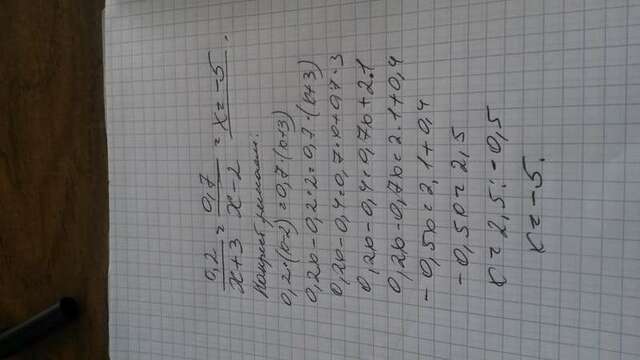 0,2/x+3 = 0,7/x-2 = x=-5.
Накрест решаем:
0,2·(x-2)=0,7·(x+3)
0,2x-0,2·2=0,7·(x+3)
0,2x-0,4=0,7·x+0,7·3
0,2x-0,4=0,7x+2.1
0,2x-0,7x=2.1+0,4
-0,5x=2,1+0,4
-0,5x=2,5
x=2,5:-0,5
x=-5.